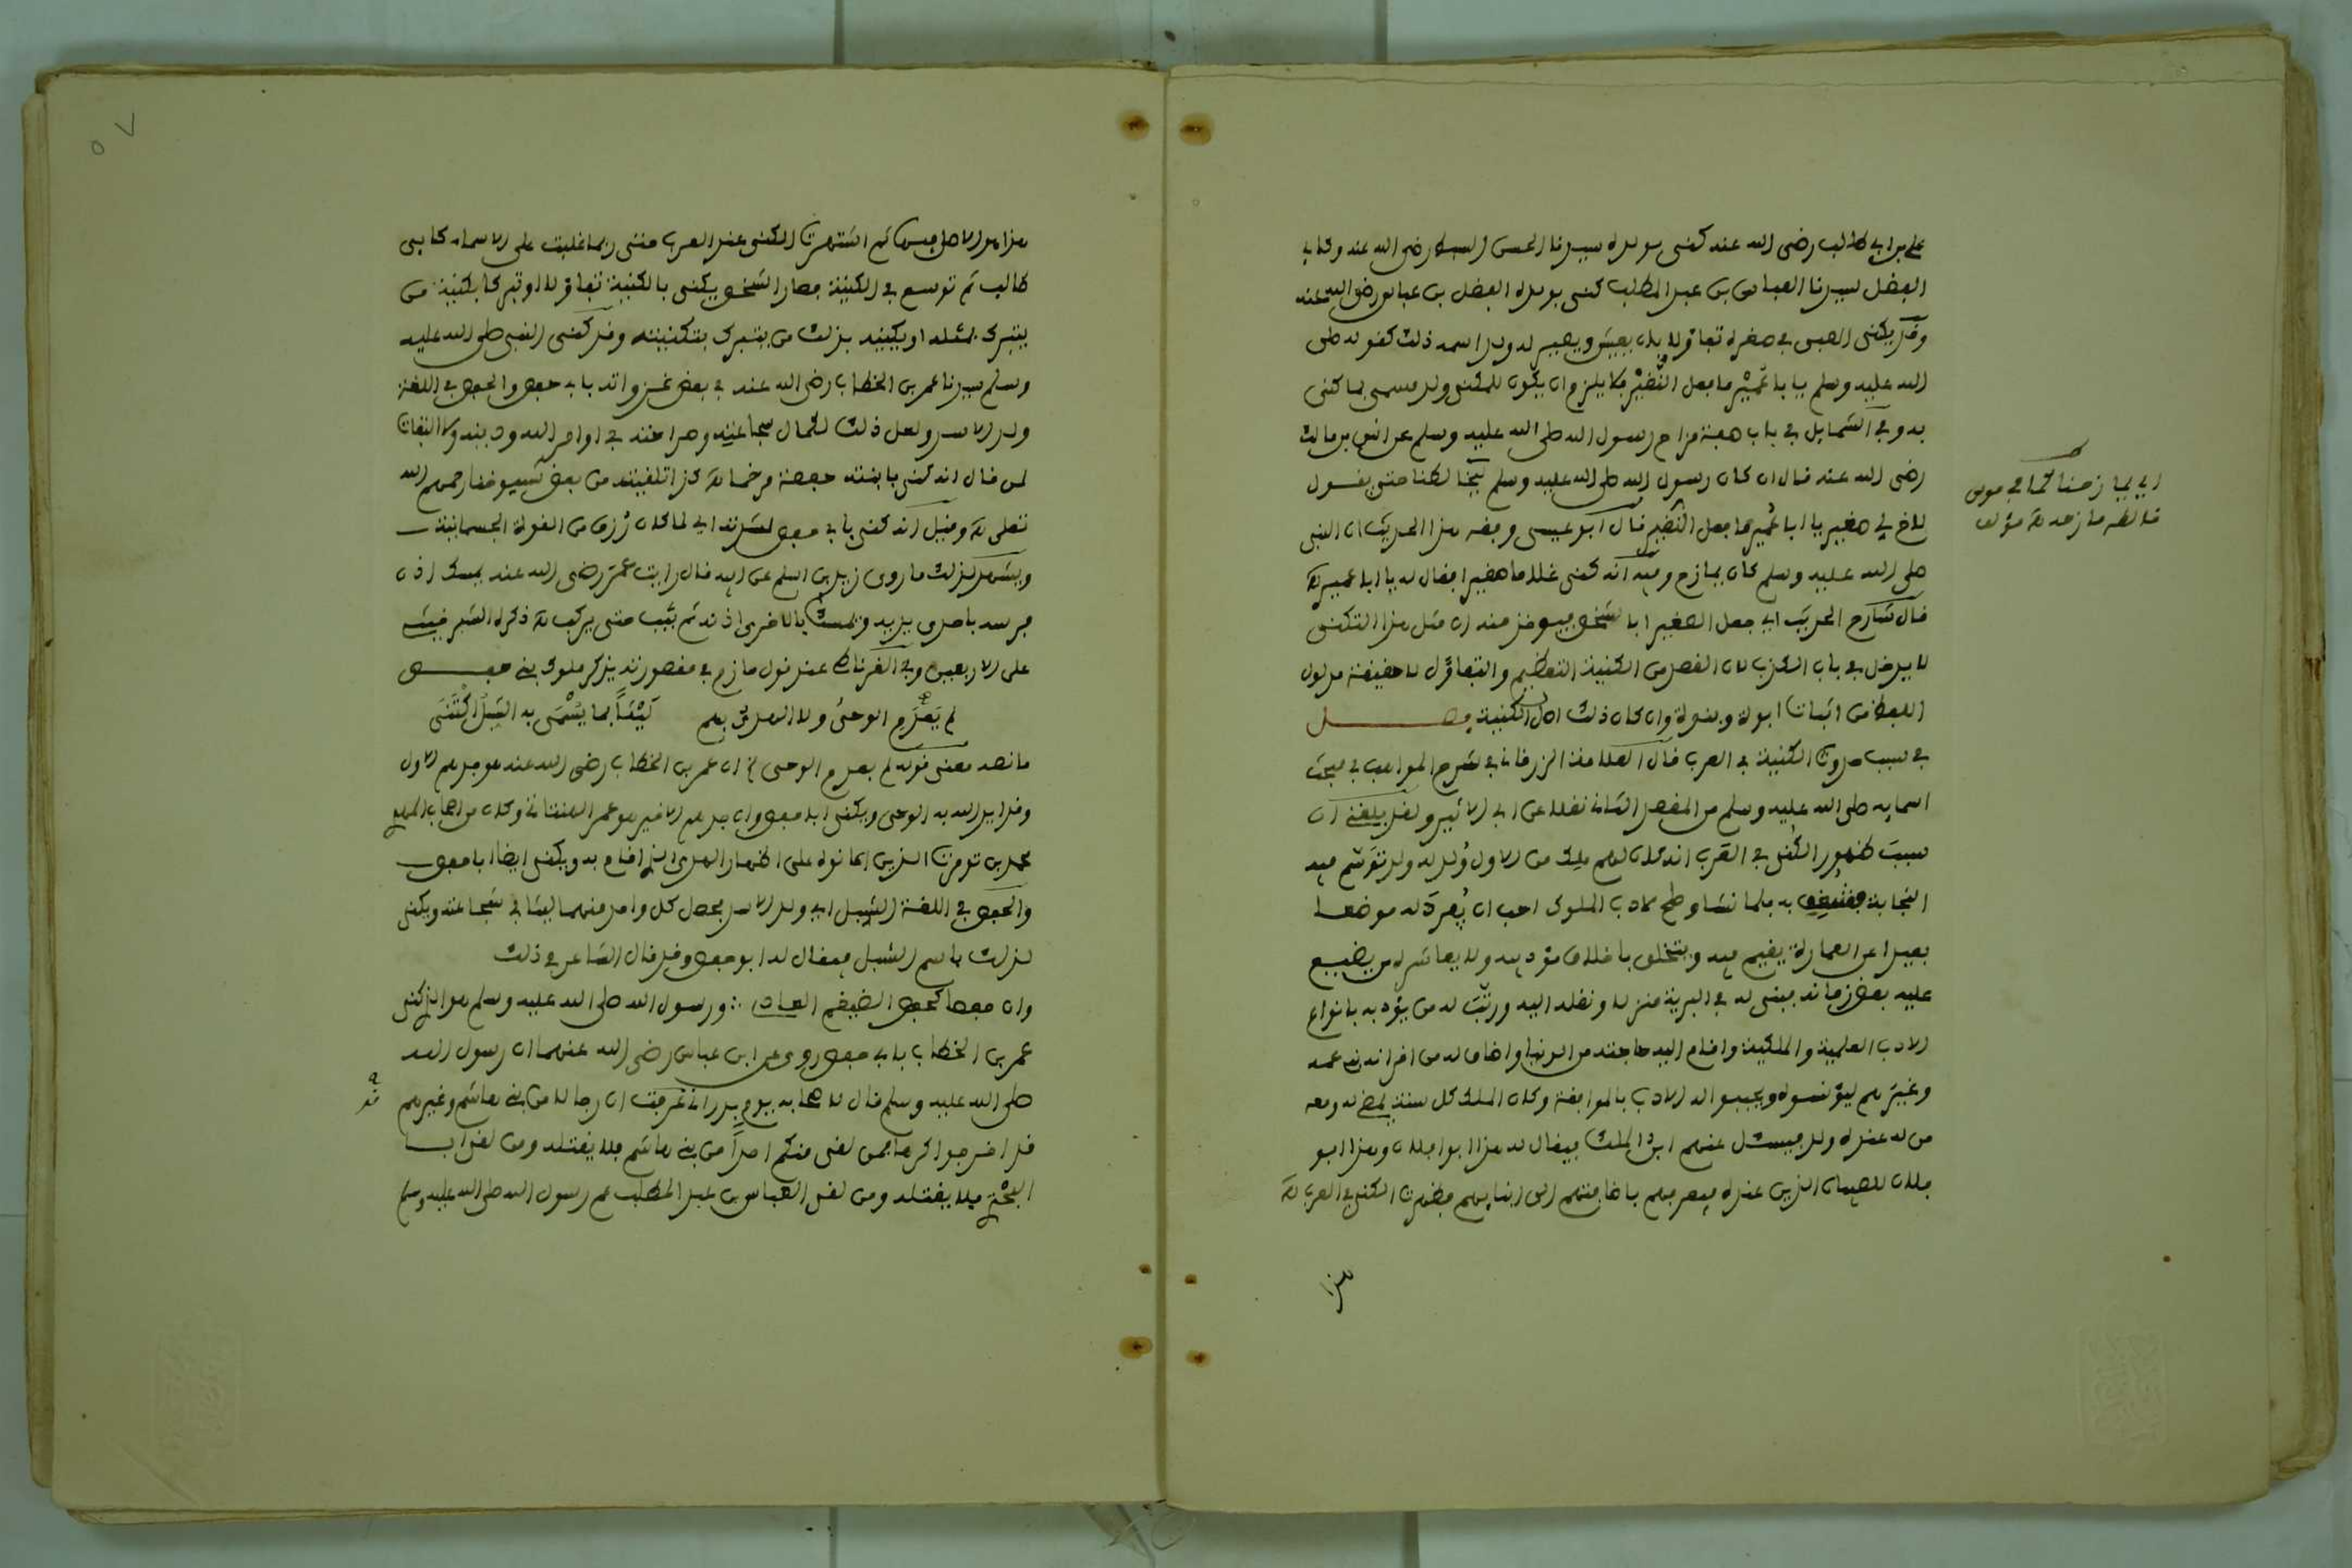 علي بن ابي طالب رضي الله عنه كني بولده سيدنا الحسن السبط رضي الله عنه وكابي
الفضل لسيدنا العباس بن عبد المطلب كني بولده الفضل بن عباس رضي الله عنه
وقد يكنى الصبي في صغره تفاؤلا بان يعيش ويصير له ولد اسمه ذلك كقوله صلى
الله عليه وسلم يا با عُمَيْر ما فعل النُّغَيْر فلا يلزم ان يكون للمكنى ولد مسمى بما كني
به وفي الشمايل في باب صفة مزاح رسول الله صلى الله عليه وسلم عن انس بن مالك
رضي الله عنه قال ان كان رسول الله صلى الله عليه وسلم ليخالطنا حتى يقول
لاخ لي صغير يا ابا عُمير ما فعل النُّغير قال ابو عيسى وفقه هذا الحديث ان النبي
صلى الله عليه وسلم كان يمازح وفيه انه كنى غلاما صغيرا فقال له يا ابا عمير اهـ
قال شارح الحديث اي جعل الصغير ابا لشخص فيوخذ منه ان مثل هذا التكني
لا يدخل في باب الكذب لان القصد من الكنية التعظيم والتفاؤل لا حقيقة مدلول
اللفظ من اثبات ابوة وبنوة وان كان ذلك اصل الكنية فصل
في سبب حدوث الكنية في العرب قال العلامة الزرقاني في شرح المواهب في مبحث
اسمايه صلى الله عليه وسلم من المقصد الثاني نقلا عن ابن الاثير ولقد بلغني ان
سبب ظهور الكُنى في العرب انه كان لهم ملك من الاول وُلد له ولد توسّم فيه
النجابة فشغف به فلما نشا وصلح لادب الملوك احب ان يُفرِدَ له موضعا
بعيدا عن العمارة يقيم فيه ويتخلق باخلاق مؤدبيه ولا يعاشره من يضيع
عليه بعض زمانه فبنى له في البرية منزلا ونقله اليه ورتّب له من يؤدبه بانواع
الادب العلمية والملكية واقام اليه حاجته من الدنيا واضاف له من اقرانه بني عمه
وغيرهم ليؤنسوه ويحببوا له الادب بالموافقة وكان الملك كل سنة يمضي له ومعه
من له عنده ولد فيسئل عنهم ابن الملك فيقال له هذا ابو فلان وهذا ابو
فلان للصبيان الذين عنده فيعرفهم باضافتهم الى ابنايهم فظهرت الكنى في العرب اهـ
هذا
اي يمازحنا كما في
مؤلف
هذا هو الاصل فيها ثم اشتهرت الكنى عند العرب حتى ربما غلبت على الاسماء كابي
طالب ثم توسع في الكنية فصار الشخص يكنى بالكنية تفاؤلا او تبركا بكنية من
يتبرك بمثله او يكنيه بذلك من يتبرك بتكنيته وقد كنى النبي صلى الله عليه
وسلم سيدنا عمر بن الخطاب رضي الله عنه في بعض غزواته بابي حفص والحفص في اللغة
ولد الاسد ولعل ذلك لكمال شجاعته وصرامته في اوامر الله ودينه ولا التفات
لمن قال انه كني بابنته حفصة مرخما اهـ كذا تلقيته من بعض شيوخنا رحمهم الله
تعلى اهـ وقيل انه كني بابي حفص لشدته اي لما كان رُزق من القوة الجسمانية
ويشهد لذلك ما روى زيد بن اسلم عن ابيه قال رايت عمر رضي الله عنه يمسك اذن
فرسه باحدى يديه ويمسك بالاخرى اذنه ثم يثب حتى يركب اهـ ذكره الشبرخيتي
على الاربعين وفي الغرناطي عند قول حازم في مقصورته يذكر ملوك بني حفص
لم يَعْدَمِ الوحيَ ولا الهدى بهم لَيْثاً بما يُسْمَى به الشبل اكْتَنَى
ما نصه معنى قوله لم يعدم الوحي ان عمر بن الخطاب رضي الله عنه هو جدهم الاول
وقد ايد الله به الوحي ويكنى ابا حفص وان جدهم الاخير هو عمر الهنتاتي وكان من اصحاب المهدي
محمد بن تومرت الذين اعانوه على اظهار الهدى الذي قام به ويكنى ايضا ابا حفص
والحفص في اللغة الشبل اي ولد الاسد فجعل كل واحد منهما ليثا في شجاعته ويكنى
لذلك باسم الشبل فيقال له ابو حفص وقد قال الشاعر في ذلك
وان حفصا كحفص الضيغم العادي ∴ ورسول الله صلى الله عليه وسلم هو الذي كنى
عمر بن الخطاب بابي حفص روي عن ابن عباس رضي الله عنهما ان رسول الله
صلى الله عليه وسلم قال لاصحابه يوم بدر اني عرفت ان رجالا من بني هاشم وغيرهم
قد اخرجوا كرها فمن لقي منكم احداً من بني هاشم فلا يقتله ومن لقي ابا
البختري فلا يقتله ومن لقي العباس بن عبد المطلب عم رسول الله صلى الله عليه وسلم
٥٧